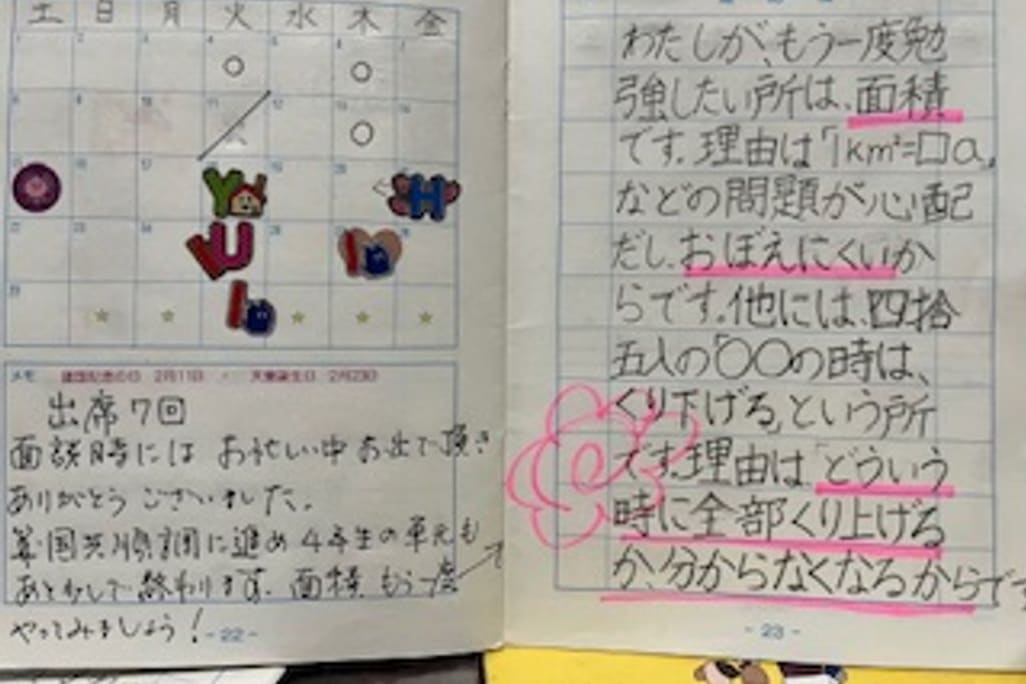 土 日 月 火 水 木 金
メモ 建国記念の日 2月11日 ・ 天皇誕生日 2月23日
出席7回
面談時には お忙しい中 お出で頂き
ありがとう ございました。
算・国共順調に進め 4年生の単元も
あと少しで 終わります。面積 もう一度
やってみましょう!
-22-
わたしが、もう一度勉
強したい所は、面積
です。理由は「1km²=□a」
などの問題が心配
だし、おぼえにくいか
らです。他には、四捨
五入の「○○の時は、
くり下げる」という所
です。理由は「どういう
時に全部くり上げる
か、分からなくなるからです
-23-